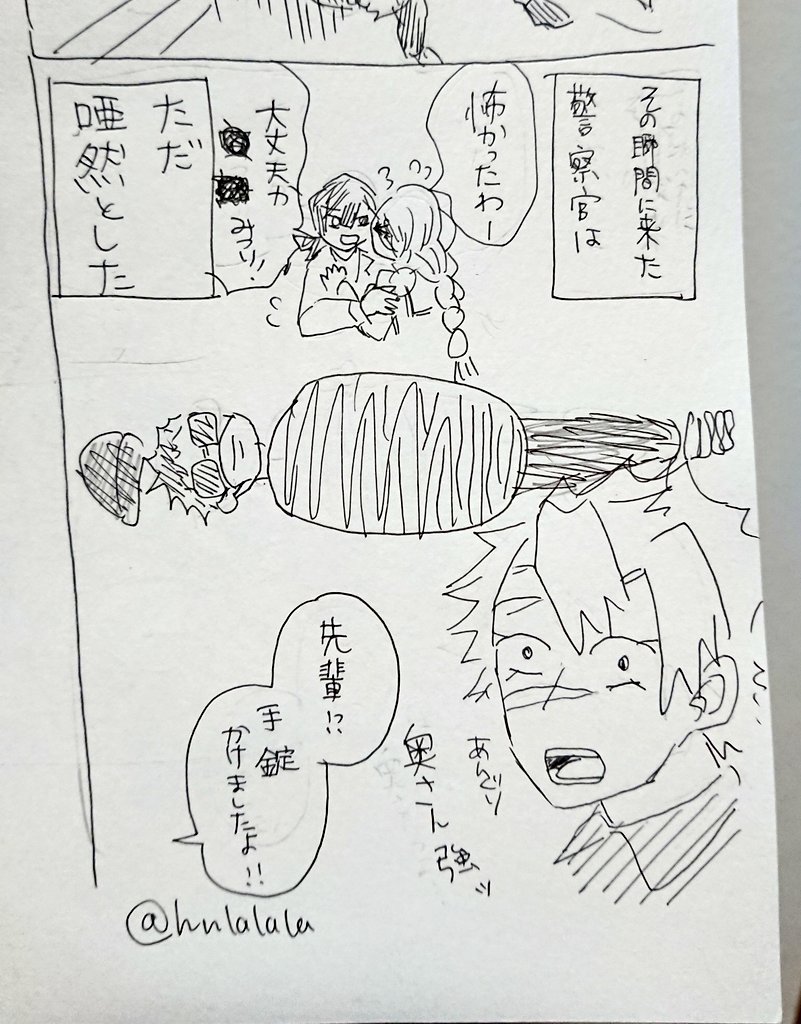 その瞬間に来た
警察官は
怖かったわー
大丈夫か
みつり!!
ただ
唖然とした
先輩!?
手錠
かけましたよ!!
あんぐり
奥さん
強ッ
@hnlalala